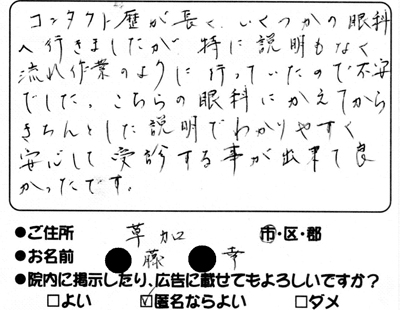 コンタクト歴が長く、いくつかの眼科
へ行きましたが、特に説明もなく
流れ作業のように行っていたので不安
でした。こちらの眼科にかえてから
きちんとした説明でわかりやすく
安心して受診する事が出来て良
かったです。
●ご住所 草加 市・区・郡
●お名前 ●藤●幸
●院内に掲示したり、広告に載せてもよろしいですか?
□よい ☑匿名ならよい □ダメ